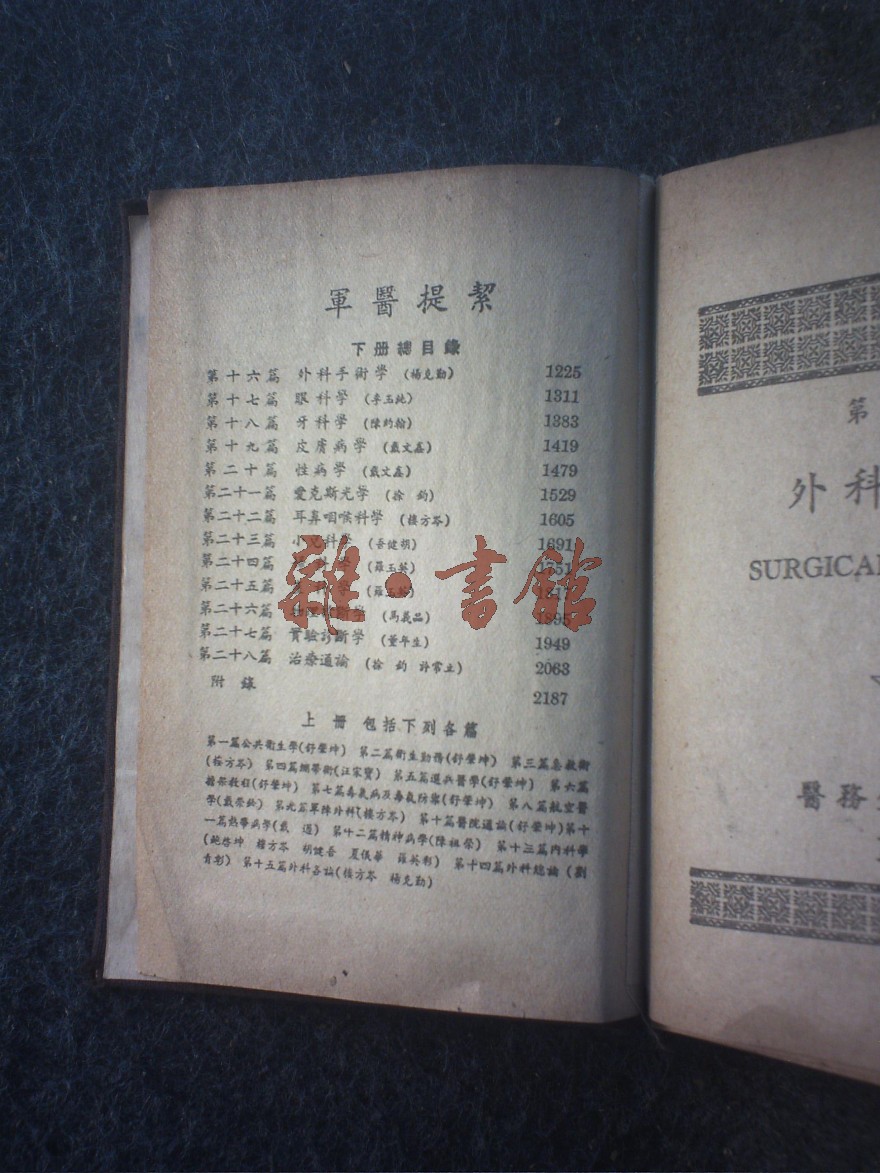 軍醫提絜
下册總目錄
第十六篇 外科手術學 (楊克勤) 1225
第十七篇 眼科學 (李玉純) 1311
第十八篇 牙科學 (陳約翰) 1383
第十九篇 皮膚病學 (戴文鑫) 1419
第二十篇 性病學 (戴文鑫) 1479
第二十一篇 愛克斯光學 (徐 鈞) 1529
第二十二篇 耳鼻咽喉科學 (樓方岑) 1605
第二十三篇 小兒科學 (吾健胡) 1691
第二十四篇 (羅玉英) 51
第二十五篇 學 (羅玉英)
第二十六篇 斷學 (馬義品) 1895
第二十七篇 實驗診斷學 (董年生) 1949
第二十八篇 治療通論 (徐 鈞 許常立) 2063
附錄 2187
雜·書館
上冊 包括下列各篇
第一篇公共衛生學(舒榮坤) 第二篇衛生勤務(舒榮坤) 第三篇急救術
(樓方岑) 第四篇繃帶術(汪宋寶) 第五篇選兵醫學(舒榮坤) 第六篇
擔架教程(舒榮坤) 第七篇毒氣病及毒氣防禦(舒榮坤) 第八篇航空醫
學(戴榮鈐) 第九篇軍陣外科(樓方岑) 第十篇醫院通論(舒榮坤)第十
一篇熱帶病學(戴 遇) 第十二篇精神病學(陳祖榮) 第十三篇內科學
(鮑啓坤 樓方岑 胡健吾 夏儀華 羅英彩) 第十四篇外科總論 (劉
青彰) 第十五篇外科各論(樓方岑 楊克勤)
第
外科
SURGICA
醫務